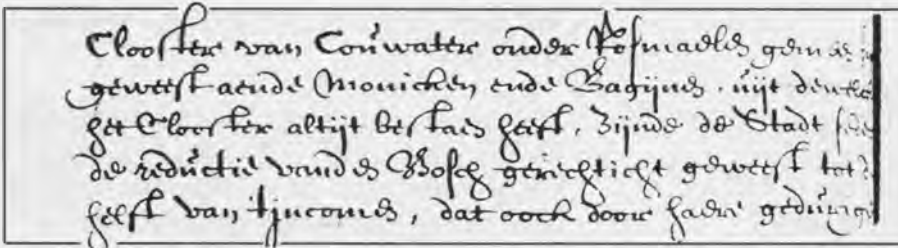 Clooster van Coûwater onder Rosmaelen gemae
geweest aende Monicken ende Bagijnen, uijt dewelc
het Clooster altijt bestaen heeft. Zijnde de Stadt
de reductie vanden Bosch gerechticht geweest tot
helft van tjncomen, dat oock door haere gedûrige